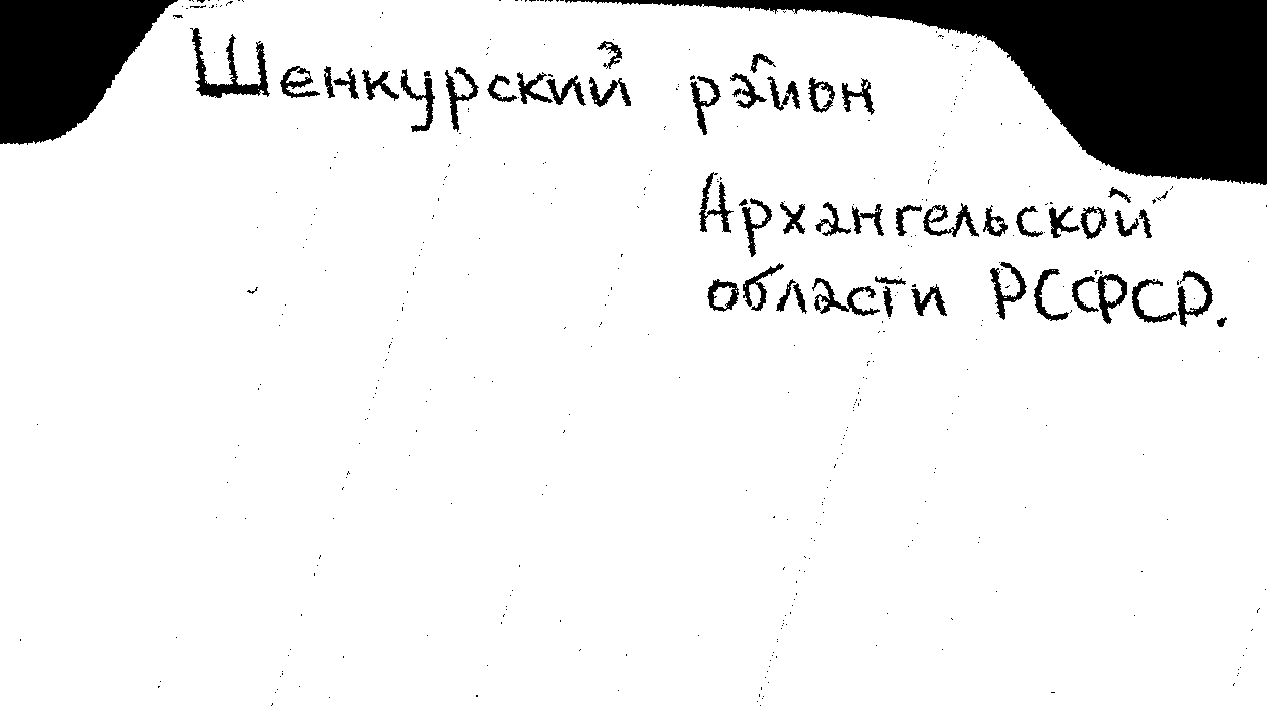 Шенкурский район
Архангельской
области РСФСР.